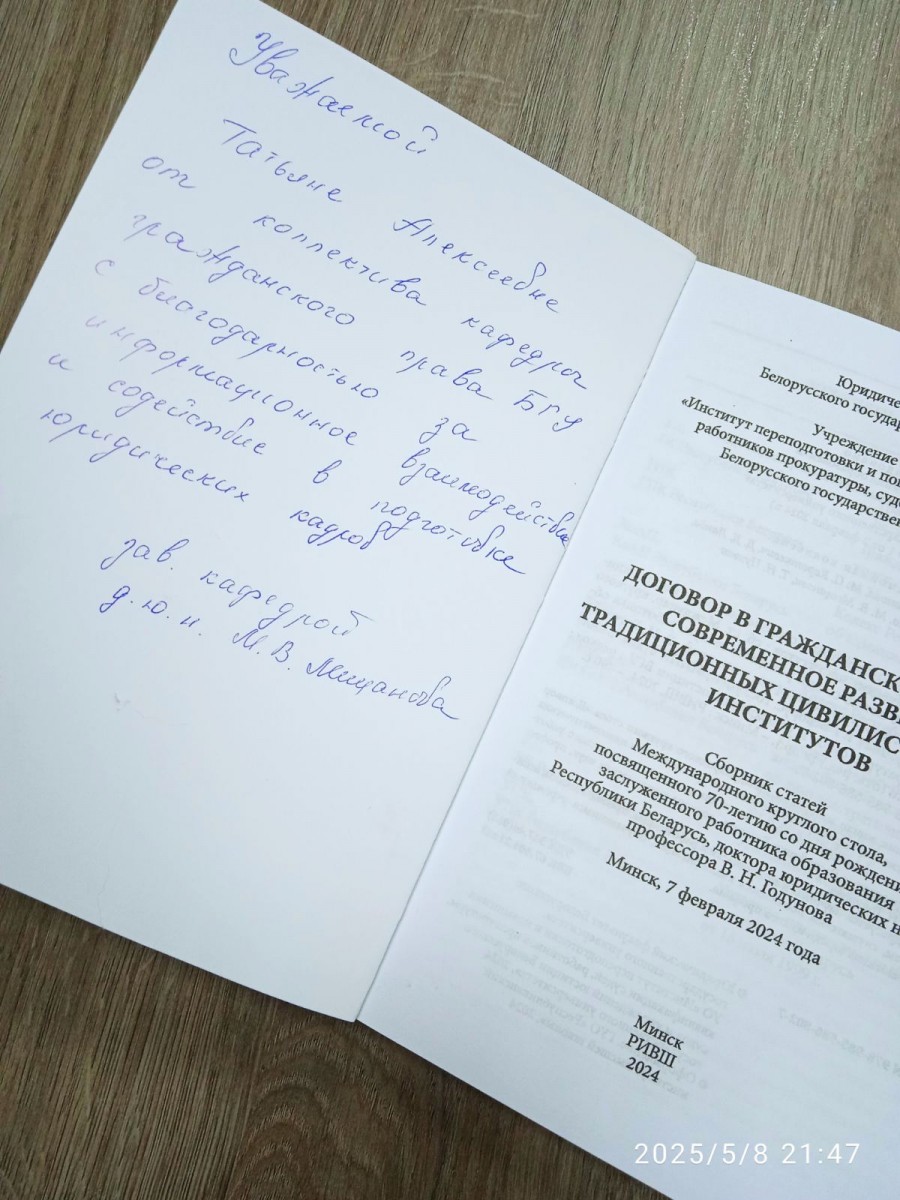 Уважаемой
Татьяне Алексеевне
от коллектива кафедры
гражданского права БГУ
с благодарностью за
информационное взаимодействие
и содействие в подготовке
юридических кадров
зав. кафедрой
д.ю.н. М.В. Мещанова
Юридиче
Белорусского государ
Учреждение
«Институт переподготовки и пов
работников прокуратуры, суд
Белорусского государствен
ДОГОВОР В ГРАЖДАНСК
СОВРЕМЕННОЕ РАЗВ
ТРАДИЦИОННЫХ ЦИВИЛИС
ИНСТИТУТОВ
Сборник статей
Международного круглого стола,
посвященного 70-летию со дня рождени
заслуженного работника образования
Республики Беларусь, доктора юридических н
профессора В. Н. Годунова
Минск, 7 февраля 2024 года
Минск
РИВШ
2024
2025/5/8 21:47